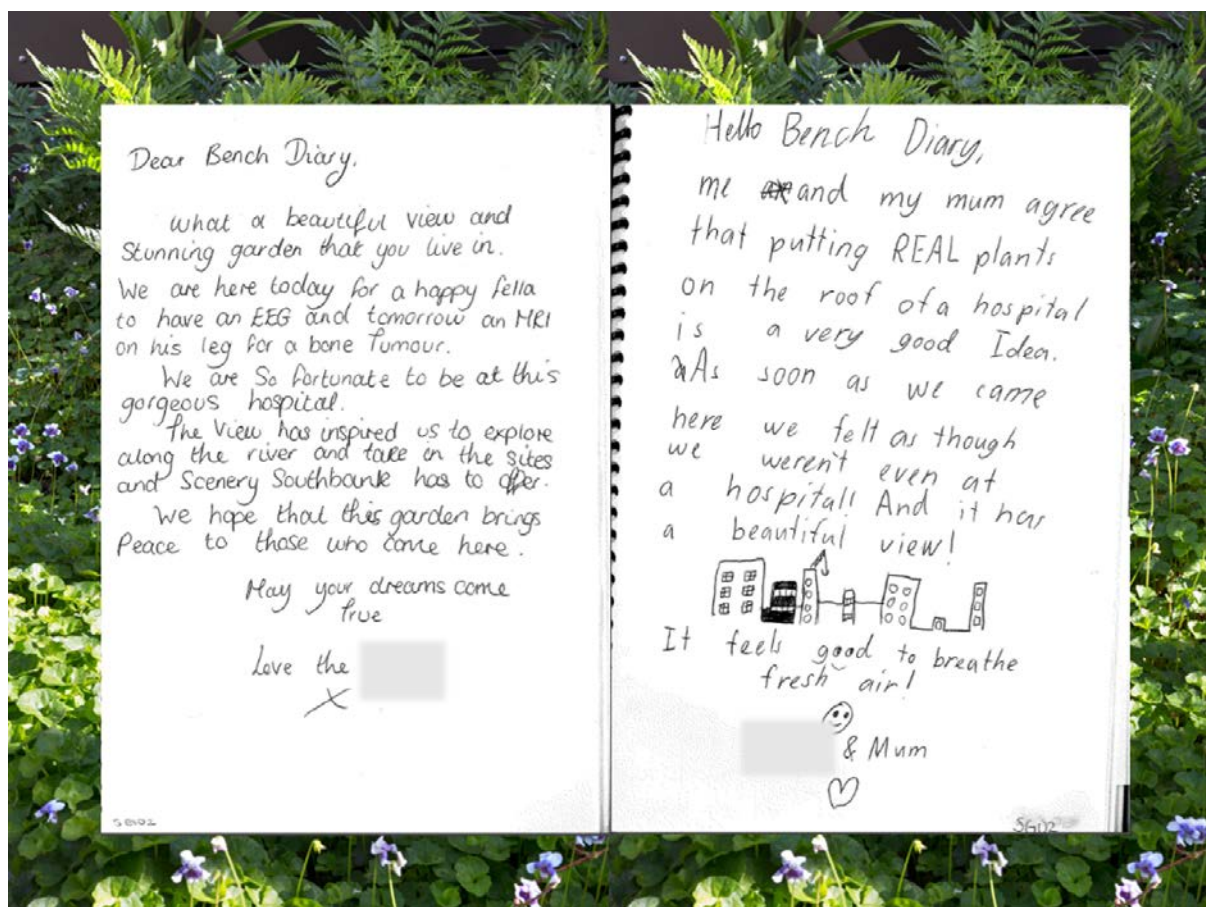 Dear Bench Diary,
what a beautiful view and
Stunning garden that you live in.
We are here today for a happy fella
to have an EEG and tomorrow an MRI
on his leg for a bone Tumour.
We are So fortunate to be at this
gorgeous hospital.
The View has inspired us to explore
along the river and take in the sites
and Scenery Southbank has to offer.
We hope that this garden brings
Peace to those who come here.
May your dreams come
True
Love the
X
SG02
Hello Bench Diary,
me and my mum agree
that putting REAL plants
on the roof of a hospital
is a very good Idea.
As soon as we came
here we felt as though
we weren't even at
a hospital! And it has
a beautiful view!
It feels good to breathe
fresh air!
& Mum
SG02